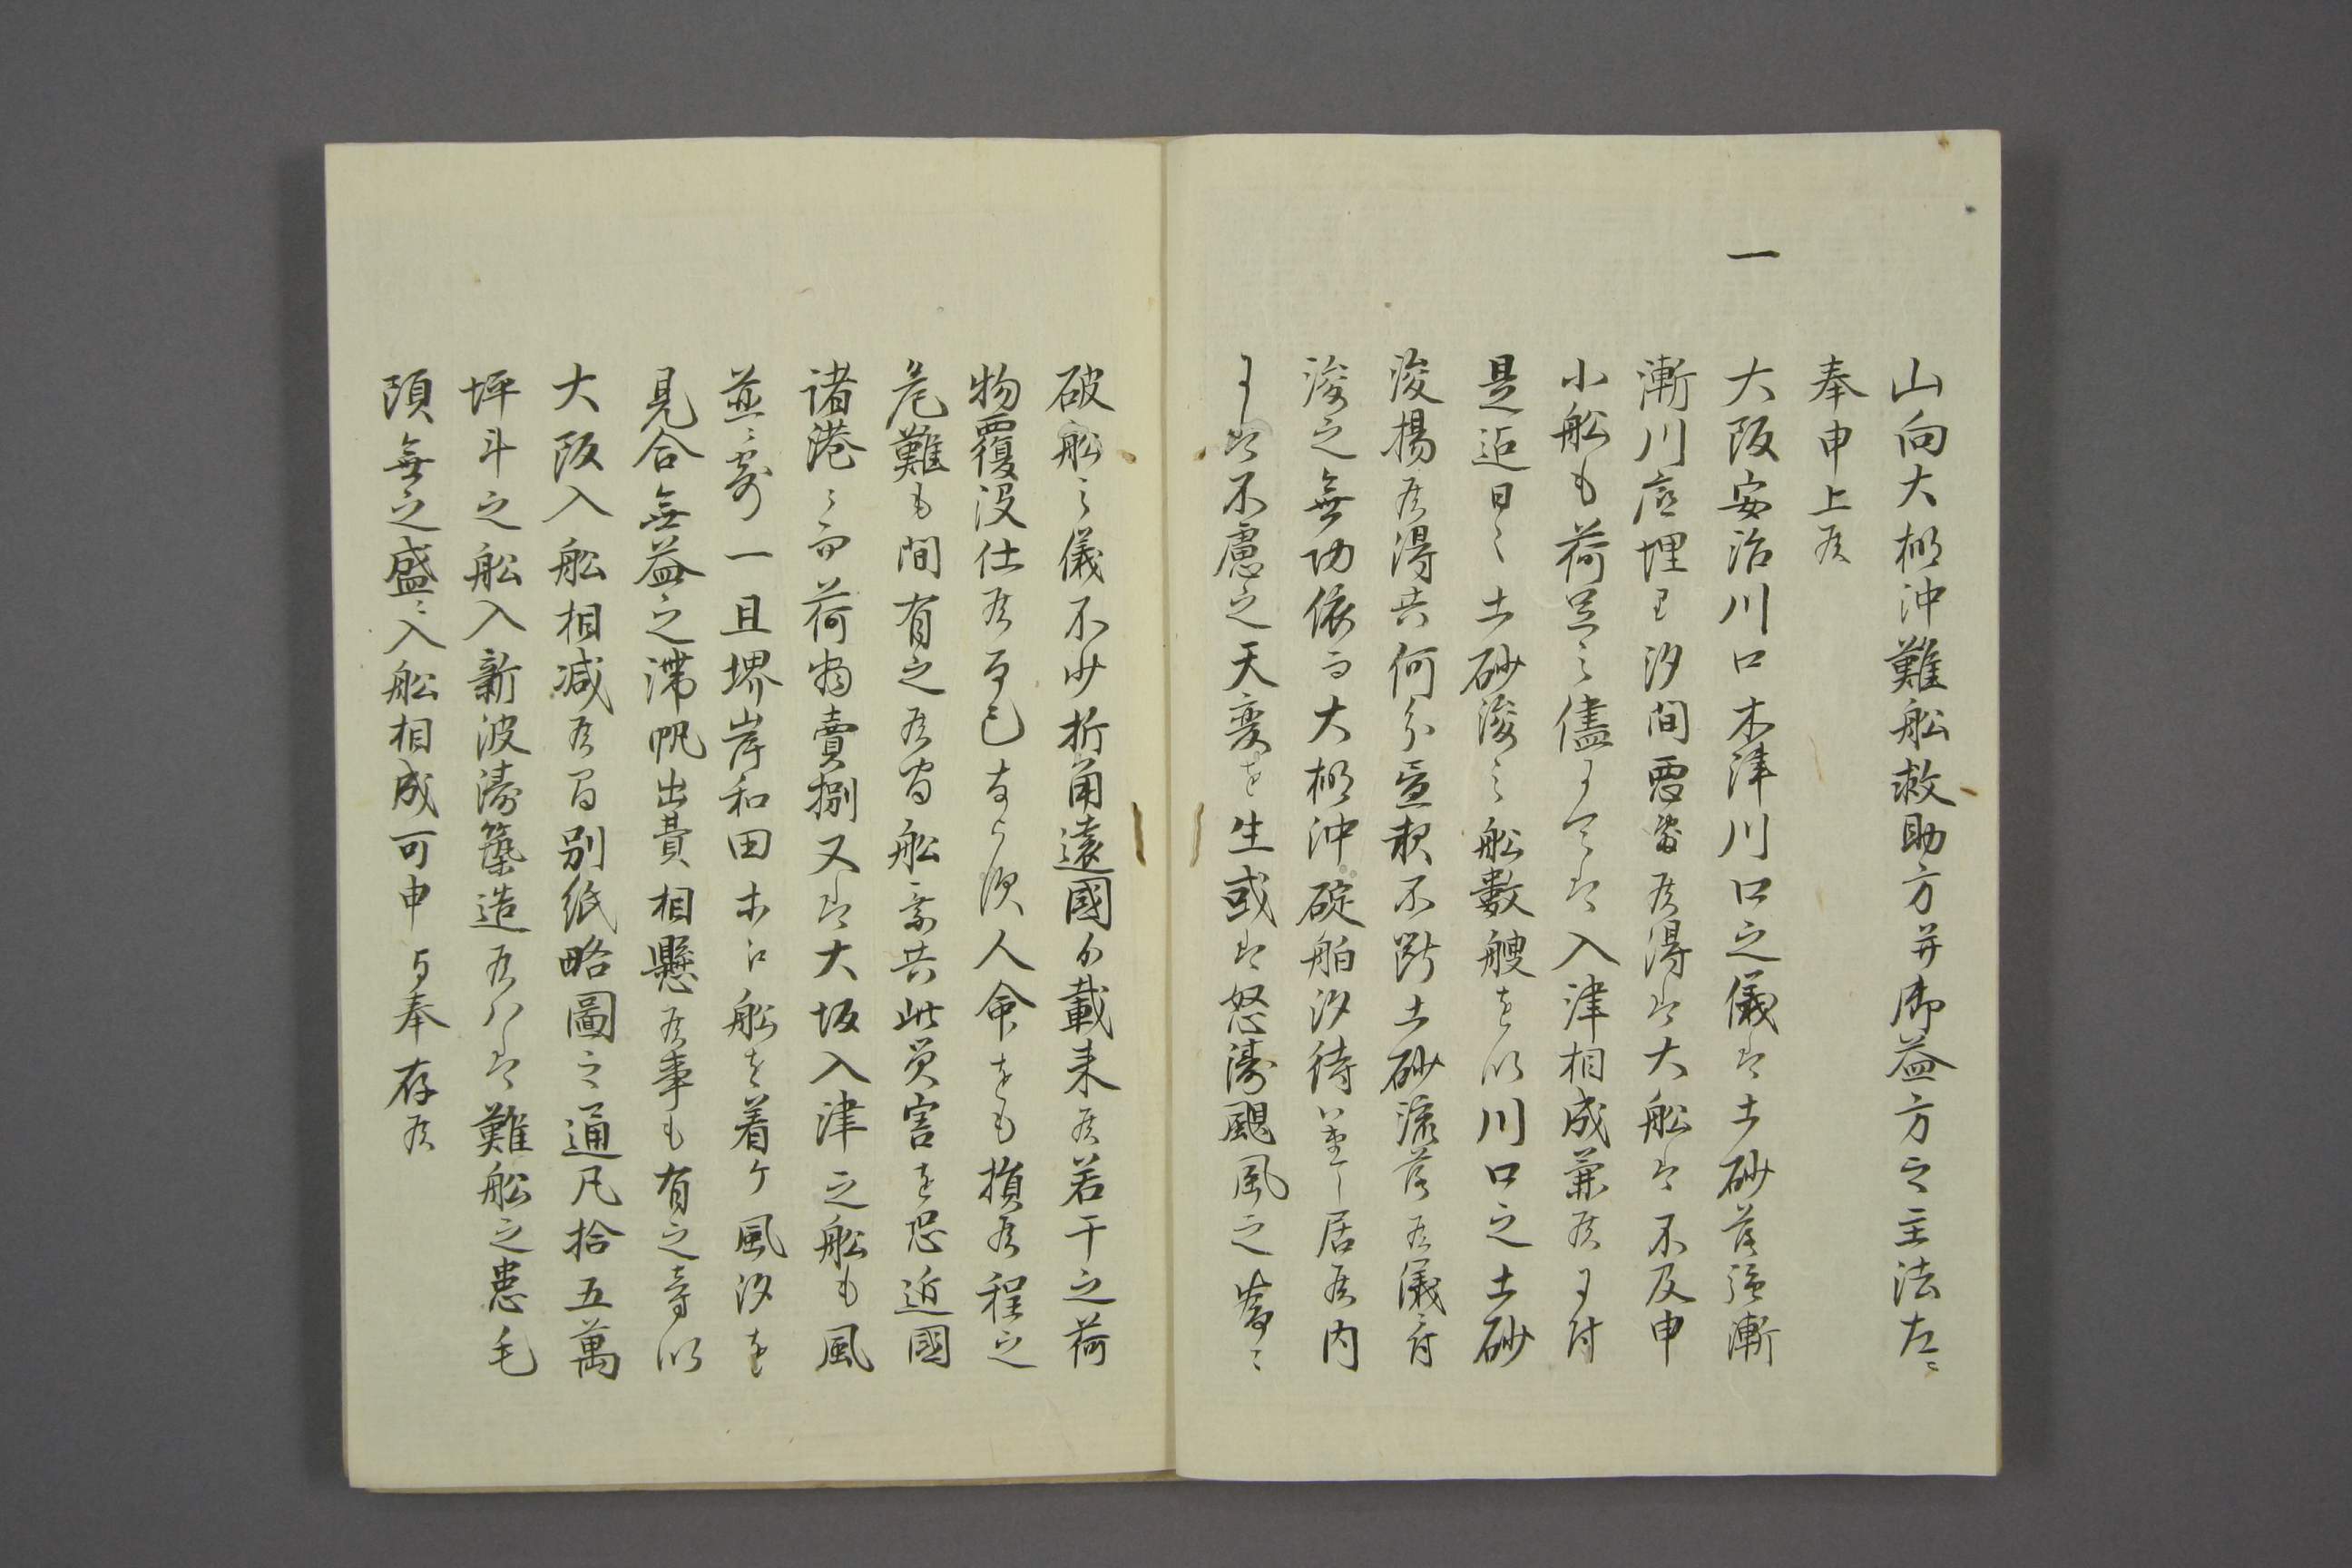 山向大椣沖難舩救助方并御益方之主法左ニ
奉申上候
一
大阪安治川口木津川口之儀者土砂落強漸
漸川底埋り汐間悪敷候得者大舩者不及申
小舩も荷足之儘ニ而者入津相成兼候ニ付
是迄日々土砂浚之舩數艘を以川口之土砂
浚揚候得共何分昼夜不断土砂流落候儀ニ付
浚之無功依而大椣沖碇舶汐待いたし居候内
ニ者不慮之天変を生或者怒濤颶風之節ニ
破舩之儀不少折角遠國ゟ載来候若干之荷
物覆没仕候而已ならす人命をも損候程之
危難も間有之候間舩乗共此災害を恐近國
諸港ニ而荷物賣捌又者大坂入津之舩も風
並ニ寄一旦堺岸和田等江舩を着ケ風汐を
見合無益之滞帆出費相懸候事も有之等以
大阪入舩相減候間別紙略圖之通凡拾五萬
坪斗之舩入新波濤築造候ハヽ者難舩之患毛
頭無之盛ニ入舩相成可申与奉存候